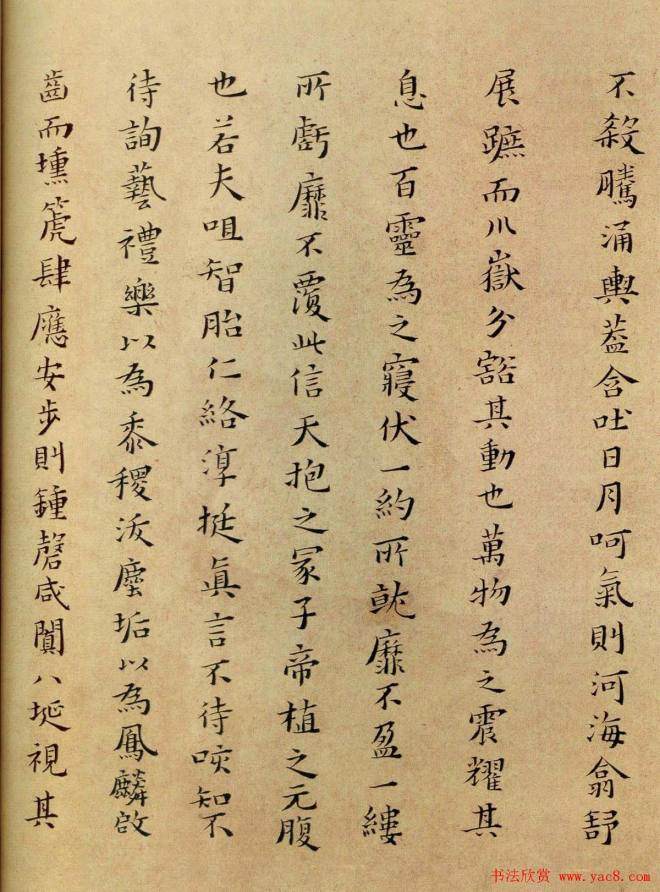 不殺騰涌輿蓋含吐日月呵氣則河海翕舒
展蹠而川嶽分豁其動也萬物為之震耀其
息也百靈為之寢伏一約所就靡不盈一縷
所虧靡不覆此信天抱之冢子帝植之元腹
也若夫咀智胎仁絡淳挺真言不待咳知不
待詢藝禮樂以為黍稷泼塵垢以為鳳麟啟
齒而壎箎肆應安步則鍾磬咸闐八埏視其
书法欣赏 www.yac8.com